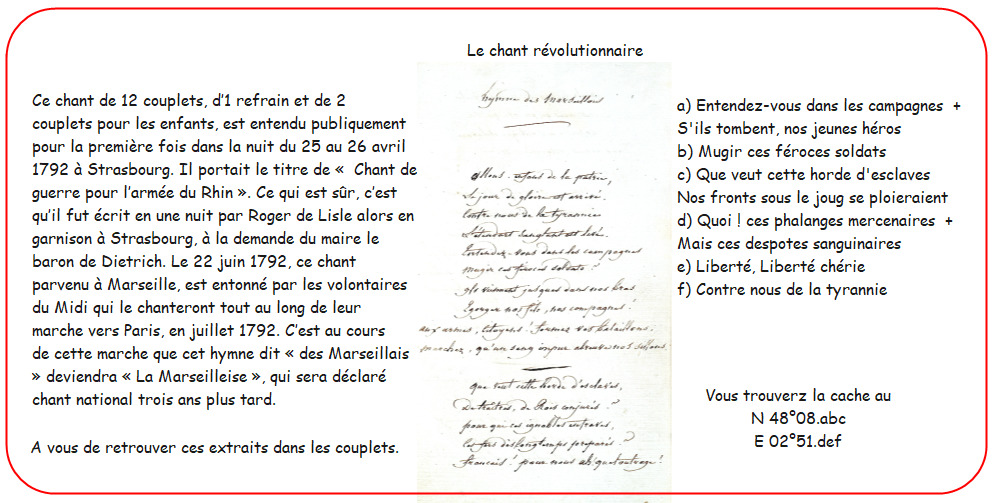 Le chant révolutionnaire
Ce chant de 12 couplets, d’1 refrain et de 2
couplets pour les enfants, est entendu publiquement
pour la première fois dans la nuit du 25 au 26 avril
1792 à Strasbourg. Il portait le titre de «  Chant de
guerre pour l’armée du Rhin ». Ce qui est sûr, c’est
qu’il fut écrit en une nuit par Roger de Lisle alors en
garnison à Strasbourg, à la demande du maire le
baron de Dietrich. Le 22 juin 1792, ce chant
parvenu à Marseille, est entonné par les volontaires
du Midi qui le chanteront tout au long de leur
marche vers Paris, en juillet 1792. C’est au cours
de cette marche que cet hymne dit « des Marseillais
» deviendra « La Marseilleise », qui sera déclaré
chant national trois ans plus tard.
A vous de retrouver ces extraits dans les couplets.
hymne des Marseillois
Allons enfans de la patrie,
Le jour de gloire est arrivé.
Contre nous de la tyrannie
L'étendart sanglant est levé.
Entendez-vous dans les campagnes
Mugir ces féroces soldats ?
Ils viennent jusques dans nos bras
Egorger nos fils, nos compagnes !
aux armes, citoyens ! formez vos bataillons.
marchez, qu'un sang impur abreuve nos sillons.
Que veut cette horde d'esclaves,
De traîtres, de Rois conjurés ?
pour qui ces ignobles entraves,
ces fers dès longtemps préparés ?
français ! pour nous ah ! quel outrage !
a) Entendez-vous dans les campagnes  +
S'ils tombent, nos jeunes héros
b) Mugir ces féroces soldats
c) Que veut cette horde d'esclaves
Nos fronts sous le joug se ploieraient
d) Quoi ! ces phalanges mercenaires  +
Mais ces despotes sanguinaires
e) Liberté, Liberté chérie
f) Contre nous de la tyrannie
Vous trouverz la cache au
N 48°08.abc
E 02°51.def